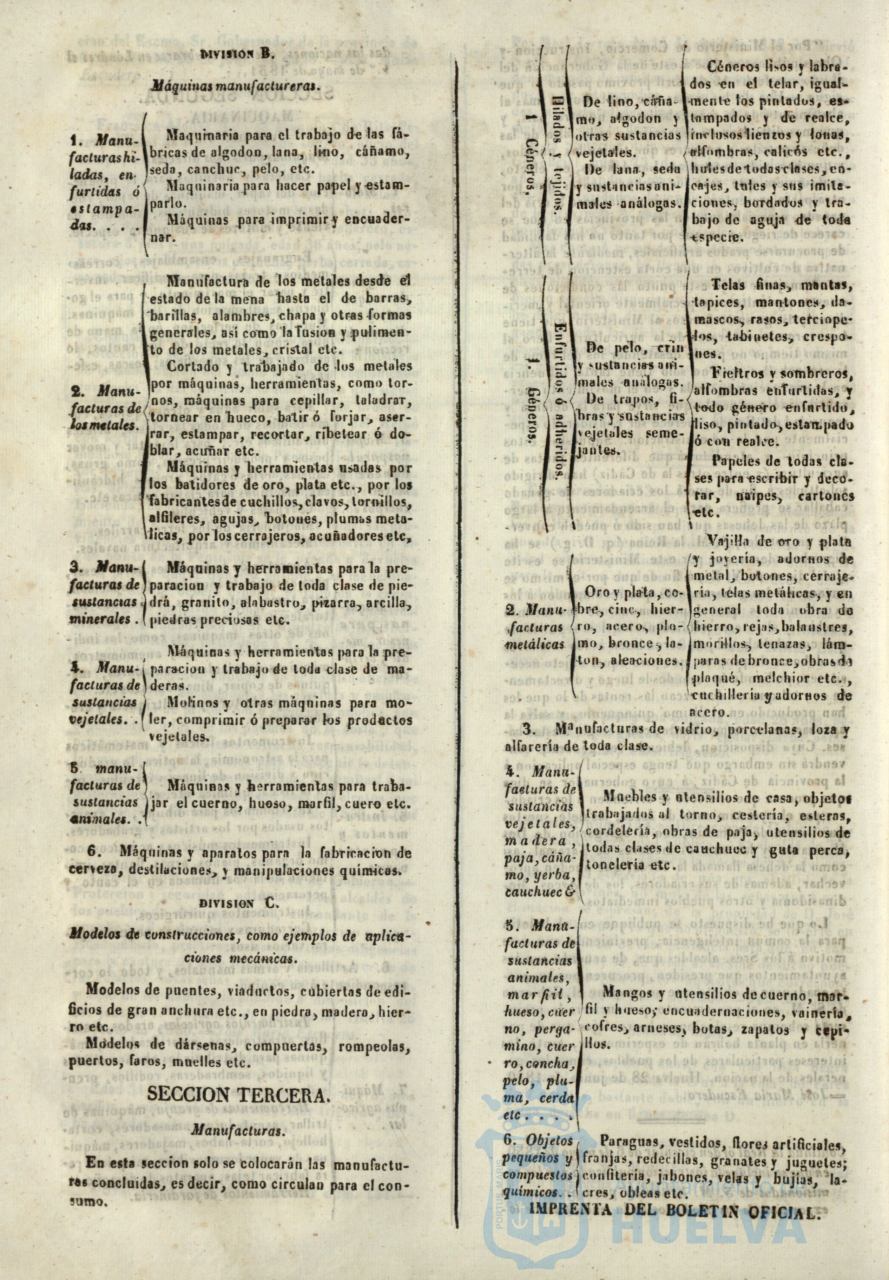 DIVISION B.
Máquinas manufactureras.
1. Manu-
facturas hi-
ladas, en-
furtidas ó
estampa-
das. . . .
Maquinaria para el trabajo de las fá-
bricas de algodon, lana, lino, cáñamo,
seda, canchuc, pelo, etc.
Maquinaria para hacer papel y estam-
parlo.
Máquinas para imprimir y encuader-
nar.
2. Manu-
facturas de
los metales.
Manufactura de los metales desde el
estado de la mena hasta el de barras,
barillas, alambres, chapa y otras formas
generales, asi como la fusion y pulimen-
to de los metales, cristal etc.
Cortado y trabajado de los metales
por máquinas, herramientas, como tor-
nos, máquinas para cepillar, taladrar,
tornear en hueco, batir ó forjar, aser-
rar, estampar, recortar, ribetear ó do-
blar, acuñar etc.
Máquinas y herramientas usadas por
los batidores de oro, plata etc., por los
fabricantes de cuchillos, clavos, tornillos,
alfileres, agujas, botones, plumas meta-
licas, por los cerrajeros, acuñadores etc,
3. Manu-
facturas de
sustancias
minerales .
Máquinas y herramientas para la pre-
paracion y trabajo de toda clase de pie-
drá, granito, alabastro, pizarra, arcilla,
piedras preciosas etc.
4. Manu-
facturas de
sustancias
vejetales. .
Máquinas y herramientas para la pre-
paracion y trabajo de toda clase de ma-
deras.
Molinos y otras máquinas para mo-
ler, comprimir ó preparar los productos
vejetales.
5 manu-
facturas de
sustancias
animales. .
Máquinas y herramientas para traba-
jar el cuerno, hueso, marfil, cuero etc.
6. Máquinas y aparatos para la fabricacion de
cerveza, destilaciones, y manipulaciones quimicas.
DIVISION C.
Modelos de construcciones, como ejemplos de aplica-
ciones mecánicas.
Modelos de puentes, viaductos, cubiertas de edi-
ficios de gran anchura etc., en piedra, madera, hier-
ro etc.
Modelos de dársenas, compuertas, rompeolas,
puertos, faros, muelles etc.
SECCION TERCERA.
Manufacturas.
En esta seccion solo se colocarán las manufactu-
ras concluidas, es decir, como circulan para el con-
sumo.
1 Géneros,
Hilados y tejidos.
De lino, cáña-
mo, algodon y
otras sustancias
vejetales.
De lana, seda
y sustancias ani-
males análogas.
Géneros lisos y labra-
dos en el telar, igual-
mente los pintados, es-
tampados y de realce,
inclusos lienzos y lonas,
alfombras, calicós etc.,
hules de todas clases, en-
cajes, tules y sus imita-
ciones, bordados y tra-
bajo de aguja de toda
especie.
1. Géneros.
Enfurtidos ó adheridos.
De pelo, crin
y sustancias ani-
males análogas.
De trapos, fi-
bras y sustancias
vejetales seme-
jantes.
Telas finas, mantas,
tapices, mantones, da-
mascos, rasos, terciope-
los, tabinetes, crespo-
nes.
Fieltros y sombreros,
alfombras enfurtidas, y
todo género enfurtido,
liso, pintado, estampado
ó con realce.
Papeles de todas cla-
ses para escribir y deco-
rar, naipes, cartones
etc.
2. Manu-
facturas
metálicas
Oro y plata, co-
bre, cinc, hier-
ro, acero, plo-
mo, bronce, la-
ton, aleaciones.
Vajilla de oro y plata
y joyería, adornos de
metal, botones, cerraje-
ria, telas metálicas, y en
general toda obra de
hierro, rejas, balaustres,
morillos, tenazas, lám-
paras de bronce, obras de
plaqué, melchior etc.,
cuchilleria y adornos de
acero.
3. Manufacturas de vidrio, porcelanas, loza y
alfarería de toda clase.
4. Manu-
facturas de
sustancias
vejetales,
madera,
paja, cáña-
mo, yerba,
cauchuec &
Muebles y utensilios de casa, objetos
trabajados al torno, cestería, esteras,
cordelería, obras de paja, utensilios de
todas clases de cauchuec y guta perca,
tonelería etc.
5. Manu-
facturas de
sustancias
animales,
marfil,
hueso, cuer
no, perga-
mino, cuer
ro, concha,
pelo, plu-
ma, cerda
etc . . . .
Mangos y utensilios de cuerno, mar-
fil y hueso; encuadernaciones, vainería,
cofres, arneses, botas, zapatos y cepi-
llos.
6. Objetos
pequeños y
compuestos
químicos. .
Paraguas, vestidos, flores artificiales,
franjas, redecillas, granates y juguetes;
confitería, jabones, velas y bujias, la-
cres, obleas etc.
IMPRENTA DEL BOLETIN OFICIAL.
HUELVA